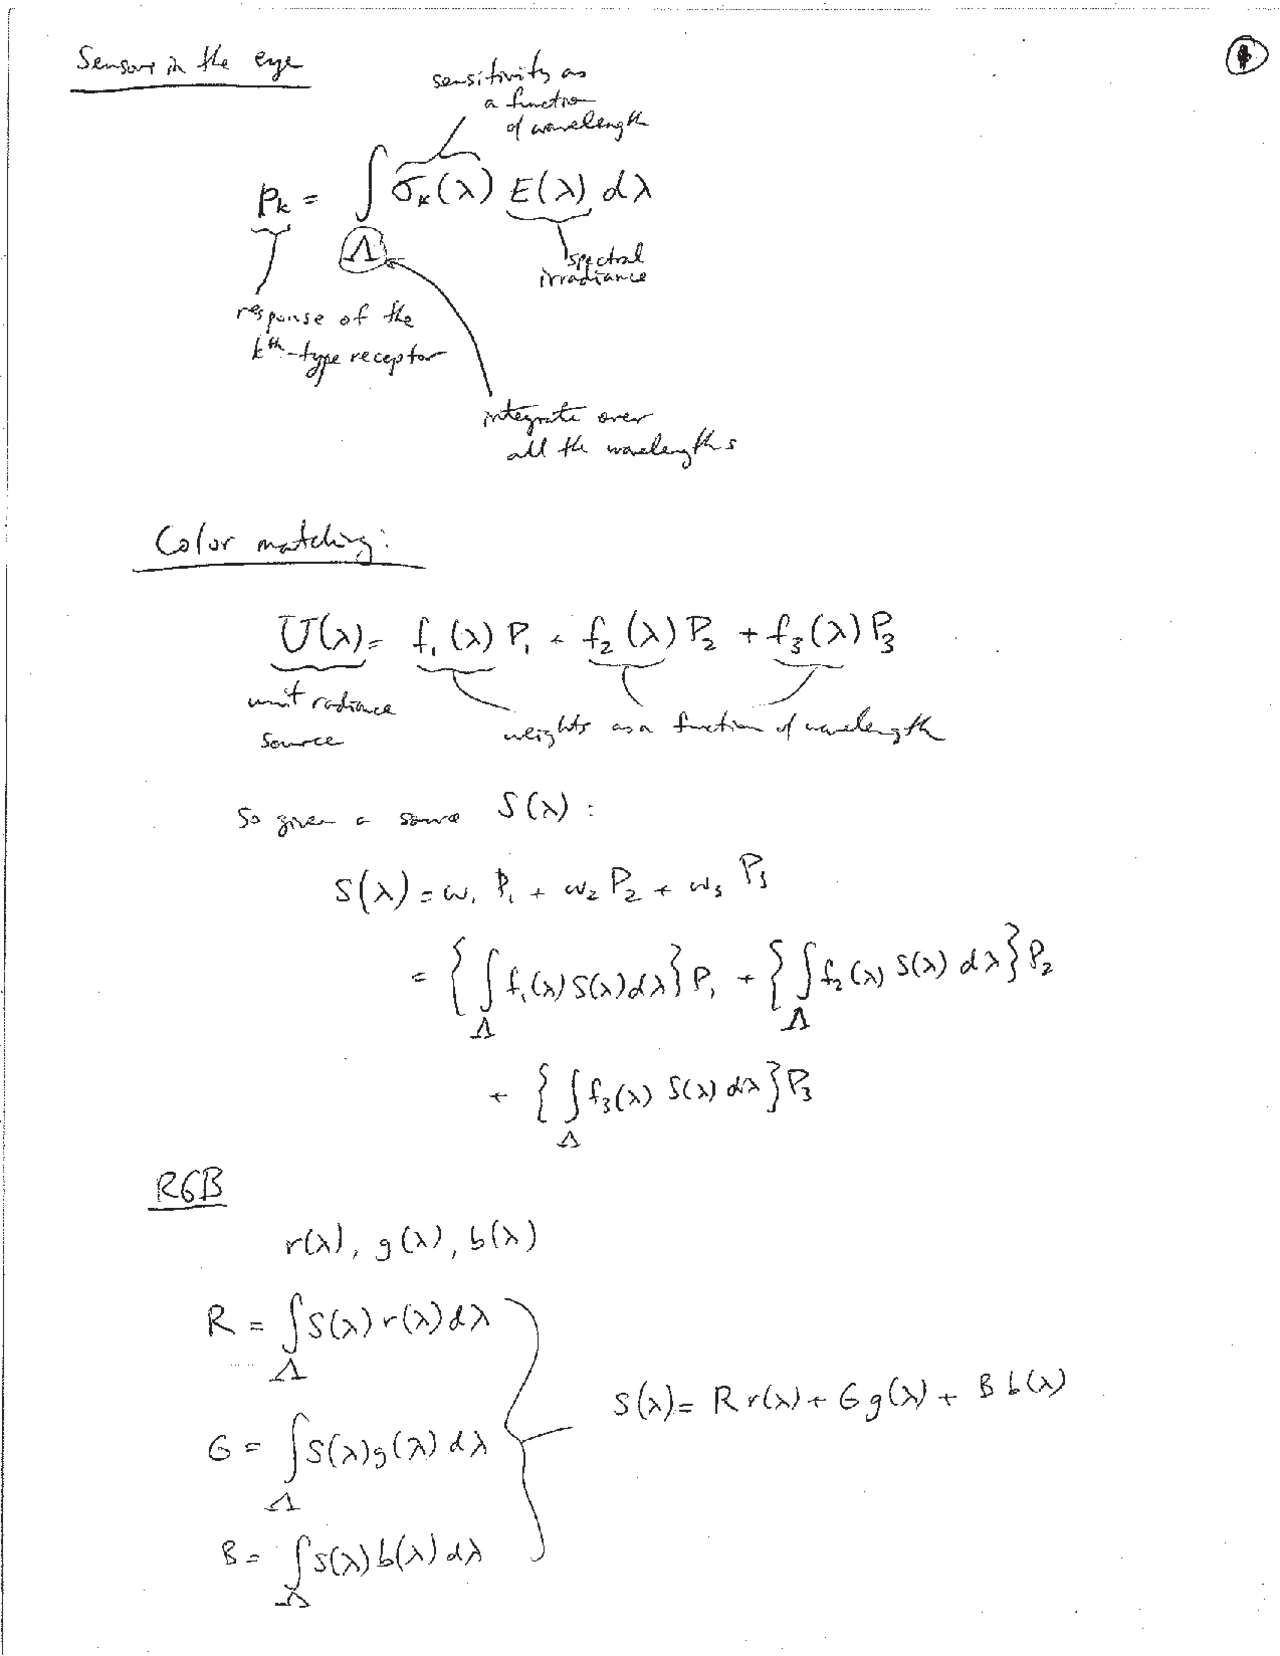 Sensors in the eye
sensitivity as
a function
of wavelength
p_k = ∫_Λ σ_k(λ) E(λ) dλ
spectral
irradiance
response of the
k^th-type receptor
integrate over
all the wavelengths
Color matching:
U(λ) = f_1(λ) P_1 + f_2(λ) P_2 + f_3(λ) P_3
unit radiance
source
weights as a function of wavelength
So given a source S(λ):
S(λ) = w_1 P_1 + w_2 P_2 + w_3 P_3
= {∫_Λ f_1(λ) S(λ) dλ} P_1 + {∫_Λ f_2(λ) S(λ) dλ} P_2
+ {∫_Λ f_3(λ) S(λ) dλ} P_3
RGB
r(λ), g(λ), b(λ)
R = ∫_Λ S(λ) r(λ) dλ
G = ∫_Λ S(λ) g(λ) dλ
B = ∫_Λ S(λ) b(λ) dλ
S(λ) = R r(λ) + G g(λ) + B b(λ)